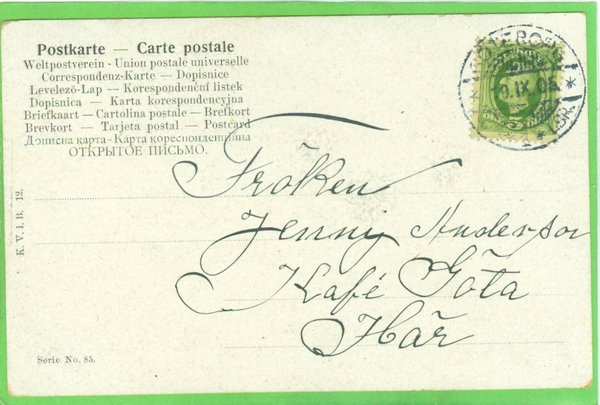 Postkarte — Carte postale
Weltpostverein - Union postale universelle
Correspondenz-Karte — Dopisnice
Levelezö-Lap — Korespondenční lístek
Dopisnica - Karta korespondencyjna
Briefkaart — Cartolina postale — Brefkort
Brevkort — Tarjeta postal — Postcard
Дописна карта - Карта кореспонденцıйна
ОТКРЫТОЕ ПИСЬМО.
5
IX
Fröken
Jenny Anderson
Kafé Göta
Här
K. V. i. B. 12.
Serie No. 85.